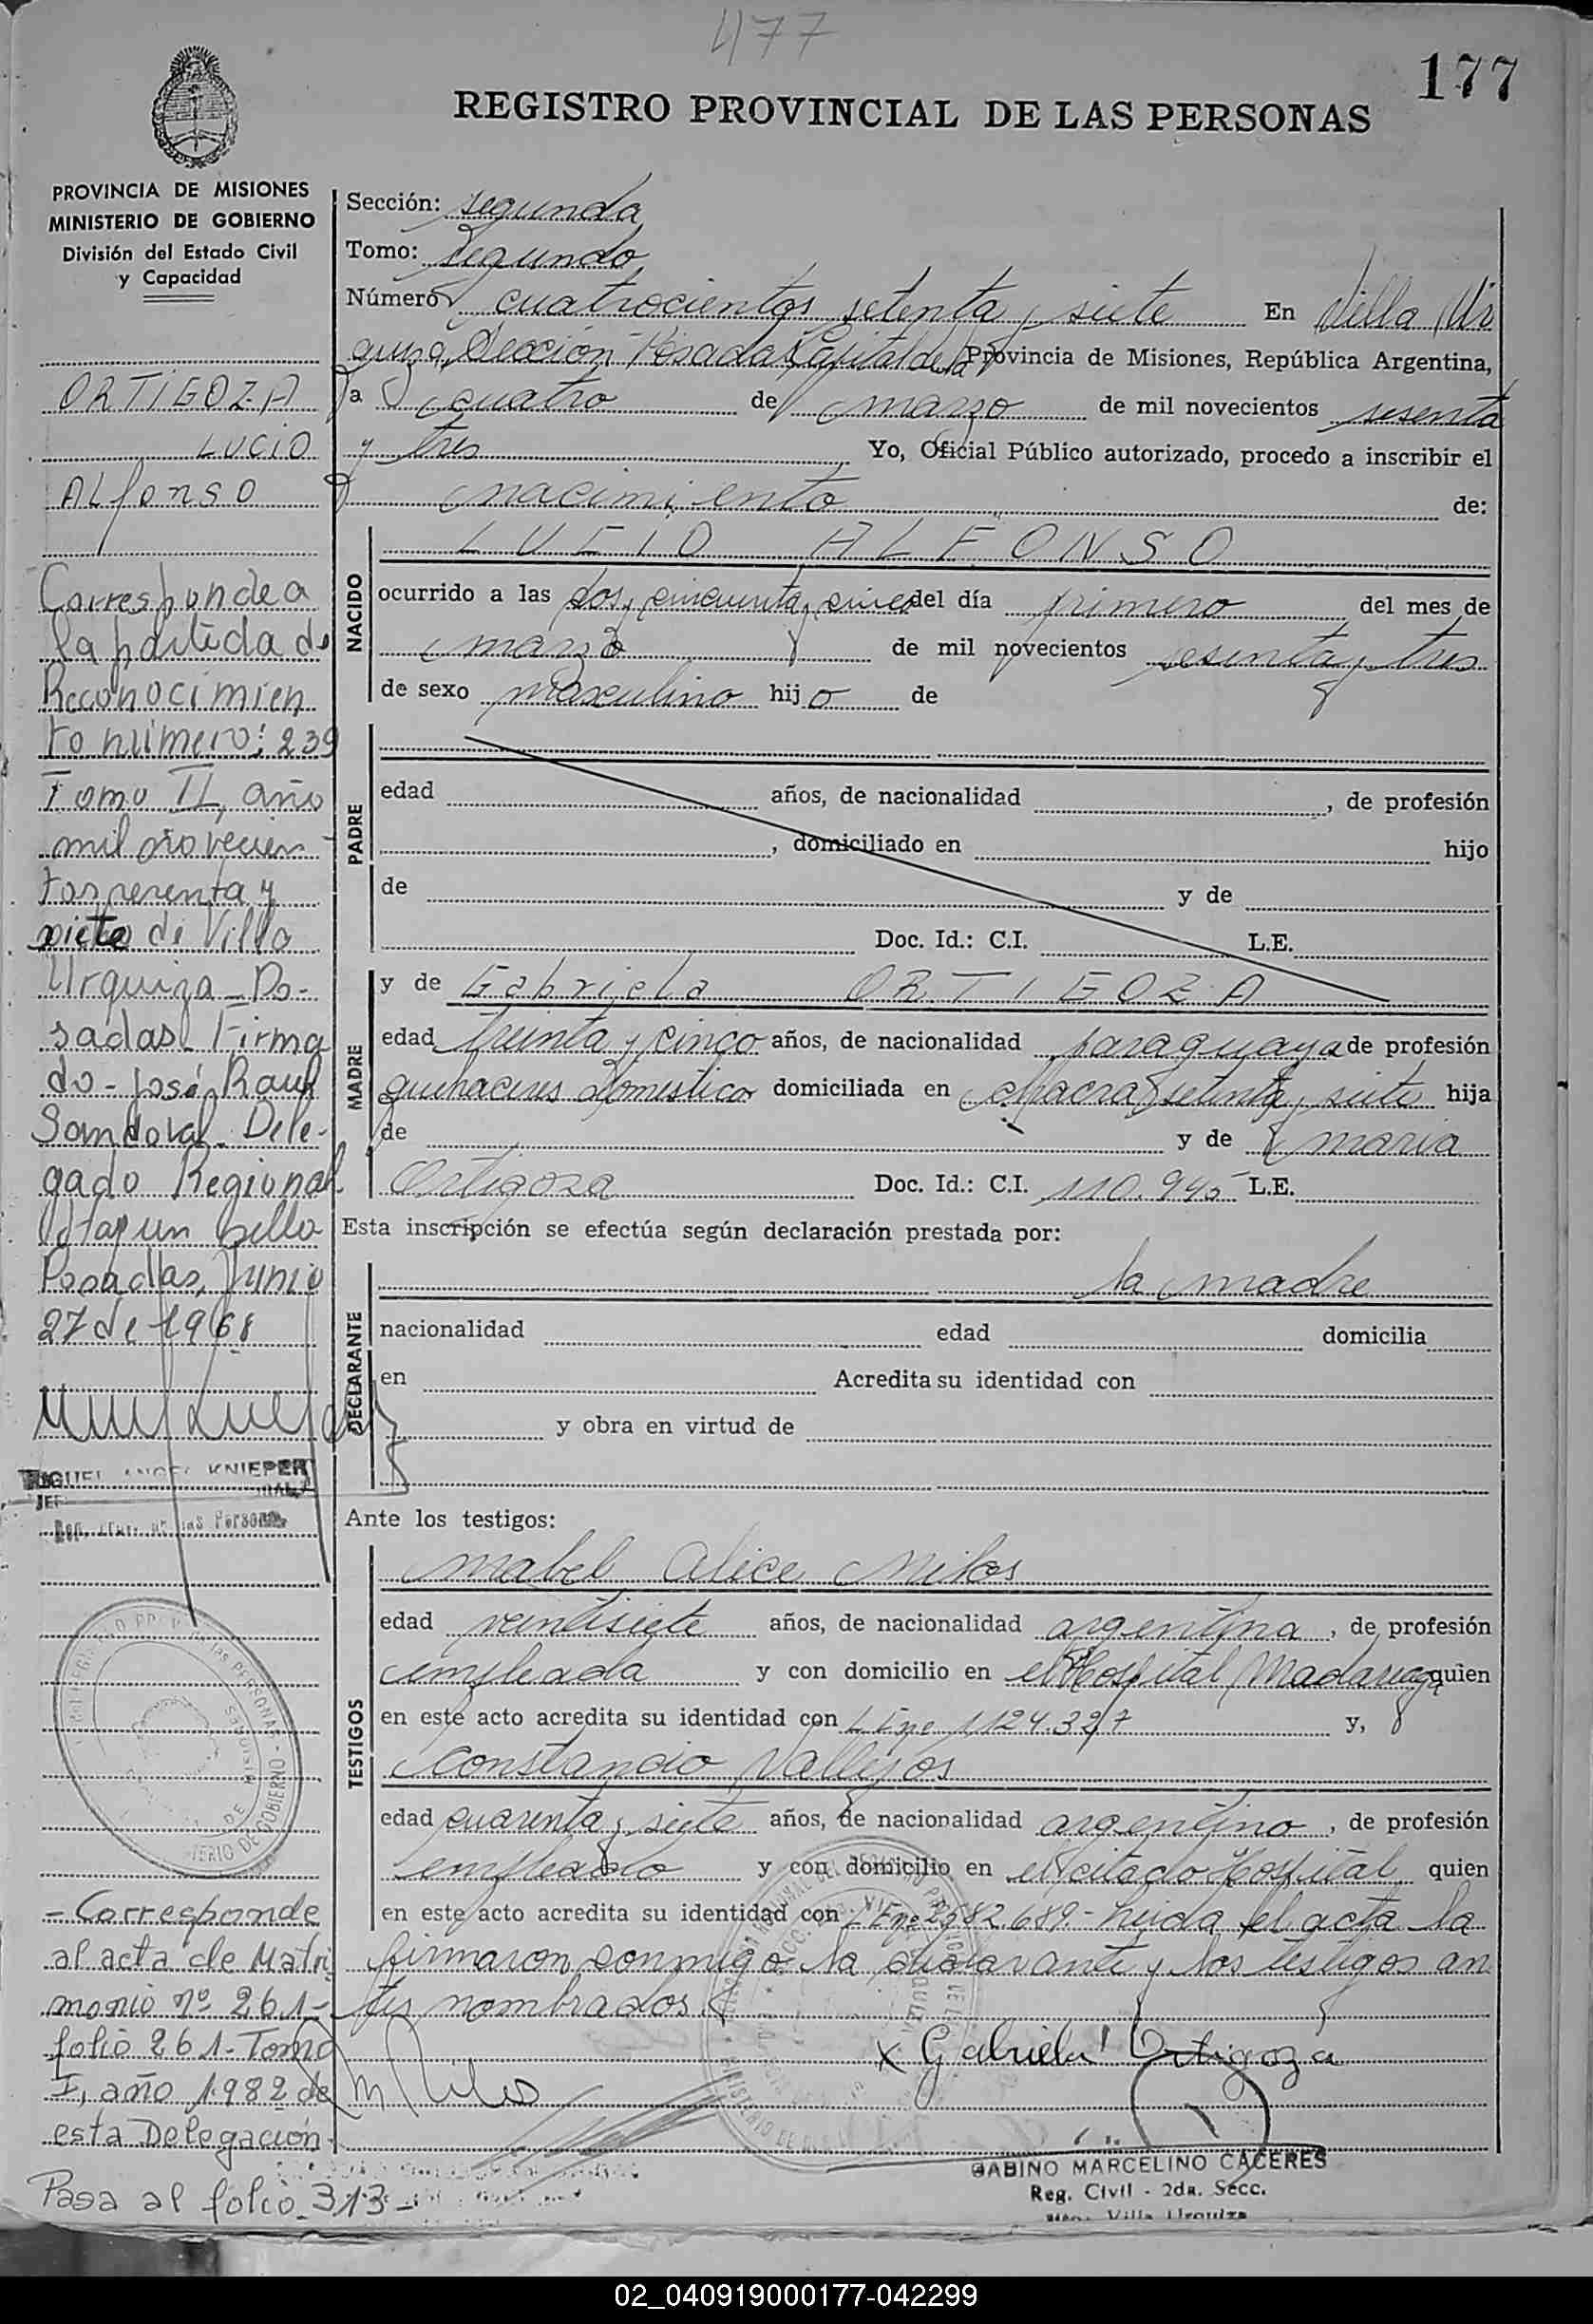 477
177
REGISTRO PROVINCIAL DE LAS PERSONAS
PROVINCIA DE MISIONES
MINISTERIO DE GOBIERNO
División del Estado Civil
y Capacidad
ORTIGOZA
LUCIO
ALfonso
Corresponde a
la partida de
Reconocimien
to número: 239
Tomo II, año
mil novecien
tos sesenta y
siete de Villa
Urquiza - Po-
sadas - Firma
do - José Raul
Sandoval - Dele-
gado Regional
Hay un sello
Posadas, Junio
27 de 1968
KNIEPER
- Corresponde
al acta de Matri
monio nº 261-
folio 261- Tomo
I, año 1982 de
esta Delegación
Pasa al folio 313-
Sección: segunda
Tomo: segundo
Número cuatrocientos setenta y siete En Villa Ur
quiza, Sección Posadas Capital de la Provincia de Misiones, República Argentina,
a cuatro de marzo de mil novecientos sesenta
y tres Yo, Oficial Público autorizado, procedo a inscribir el
nacimiento de:
NACIDO
LUCIO ALFONSO
ocurrido a las dos y cincuenta y cinco del día primero del mes de
marzo de mil novecientos sesenta y tres
de sexo masculino hijo de
PADRE
edad años, de nacionalidad , de profesión
, domiciliado en hijo
de y de
Doc. Id.: C.I. L.E.
MADRE
y de Gabriela ORTIGOZA
edad treinta y cinco años, de nacionalidad paraguaya de profesión
quehaceres domesticos domiciliada en chacra setenta y siete hija
de y de maria
Ortigoza Doc. Id.: C.I. 110.945 L.E.
Esta inscripción se efectúa según declaración prestada por:
DECLARANTE
la madre
nacionalidad edad domicilia
en Acredita su identidad con
y obra en virtud de
Ante los testigos:
TESTIGOS
Mabel Alice Milos
edad veintisiete años, de nacionalidad argentina, de profesión
empleada y con domicilio en el Hospital Madariaga quien
en este acto acredita su identidad con y,
Constancio Vallejos
edad cuarenta y siete años, de nacionalidad argentino, de profesión
empleado y con domicilio en el citado Hospital quien
en este acto acredita su identidad con leida el acta la
firmaron conmigo la declarante y los testigos an
tes nombrados.
x Gabriela Ortigoza
GABINO MARCELINO CACERES
Reg. Civil - 2da. Secc.
Villa Urquiza
02_040919000177-042299